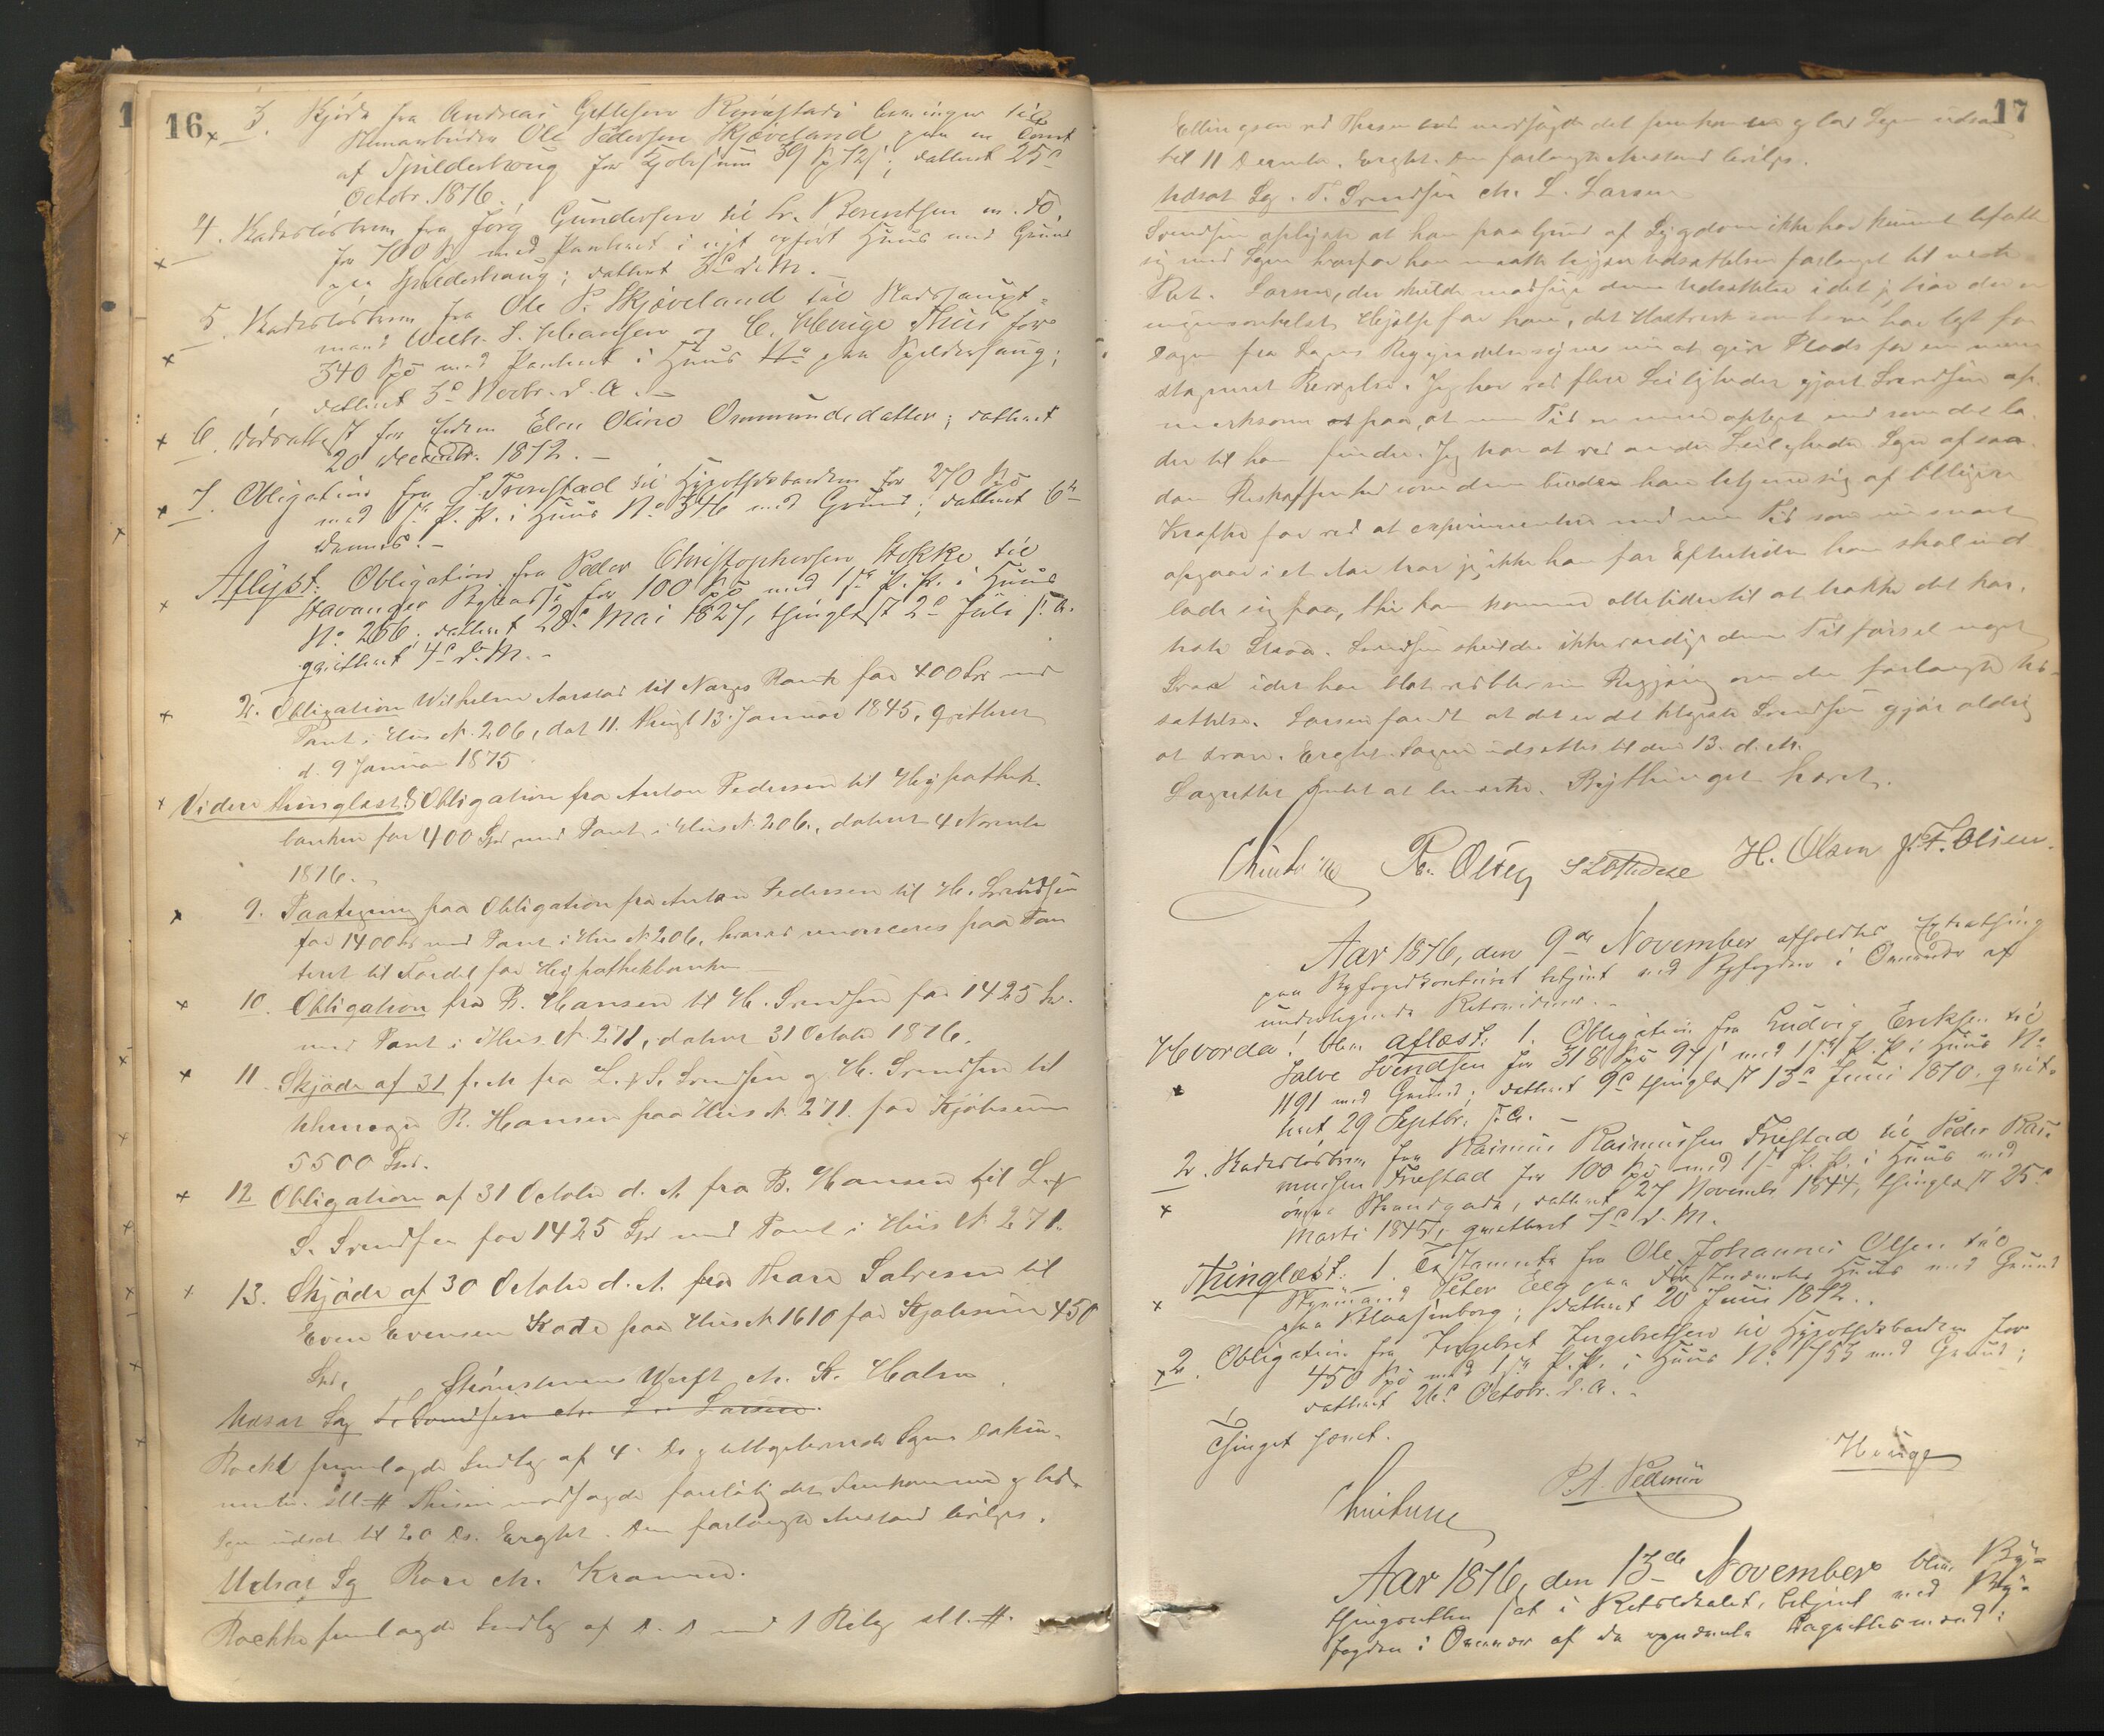 16
3. Skjøde fra Andreas Gitlesen Revestads til
Ole Pedersen Skjæveland paa en Tomt
af Spilderhaug for Kjøbesum 39 Spd 72 s; dateret 25de
Octobr. 1876.
4. Kadesløsbrev fra Jörg. Gundersen til Sr. Berentsen m. fl.
for 700 Kr med Panteret i nyt opført Huus med Grund
paa Spilderhaug; dateret 3de d. M. –
5. Kadesløsbrev fra Ole P. Skjæveland til
mand Wilh. S. Johansen og C. Hauge Thiis for
340 Spd med Panteret i Huus No paa Spilderhaug;
dateret 3de Novbr. d. A. –
6. Dødsattest for Elen Oline Ommundsdatter; dateret
20 Decembr. 1872. –
7. Obligation fra J. Tronstad til Hypothekbanken for 270 Spd
med 1ste P. P. i Huus No 346 med Grund; dateret 6te
dennes. –
Aflyst: Obligation fra Peder Christophersen Stokke til
Stavanger for 100 Spd med 1ste P. P. i Huus
No 256; dateret 28de Mai 1827, thinglæst 2de Juli s. A.
qvitteret 4de d. M. –
2. Obligation Wilhelm Aarstad til Norges Bank for 400 Spd med
Pant i Hus N. 206, dat 11. thingl 13. Januar 1845, qvitteret
d. 9 Januar 1875.
Videre thinglæst: 8 Obligation fra Anton Pedersen til Hypothek-
banken for 400 Spd med Pant i Hus N. 206, dateret 4 Novembr
1876.
9. Paategning paa Obligation fra Anton Pedersen til H. Svendsen
for 1400 Spd med Pant i Hus N 206, hvorved renonceres paa Pan
teret til Fordel for Hypothekbanken
10. Obligation fra B. Hansen til H. Svendsen for 1425 Spd.
med Pant i Hus N. 271, dateret 31 October 1876.
11. Skjøde af 31 f. M fra L. & S. Svendsen og H. Svendsen til
B. Hansen paa Hus N. 271 for Kjøbesum
5500 Spd.
12 Obligation af 31 October d. A. fra B. Hansen til L. &
S. Svendsen for 1425 Spd med Pant i Hus N. 271.
13. Skjøde af 30 October d. A. fra Thore Salvesen til
Even Evensen Kate paa Hus N 1610 for Kjøbesum 450
Spd, Strömsteens Werft ctr. St. Halm
Udsat Sag T. Svendsen ctr. L. Larsen.
Roehl fremlagde Indlæg af 4. Ds og tilbageleverede Sagens Doku-
menter. All. # Thiisen modsagde foreløbig det Fremkomne og bad
Sagen udsat til 20 Ds. Eragtet. Den forlangte Anstand bevilges.
Udsat Sag Roer ctr. Kramer.
fremlagde Indlæg af D. D med 1 Bilag All. #.
17
Ellingsen ved Thiisen modsagde det fremkomne og bad Sagen udsat
til 11 Decembr. Eragtet. Den forlangte Anstand bevilges.
Udsat Sag. T. Svendsen ctr. L. Larsen
Svendsen oplyste at han paa Grund af Sygdom ikke har kunnet befatte
sig med Sagen hvorfor han maatte begjære Udsættelse forlanget til næste
Ret. Larsen, der skulde modsige denne Udsættelse idet jeg troer der er
ingensomhelst Hjælp for ham, det som han har lagt for
Dagen fra Sagens Begyndelse synes nu at give Plads for en mere
stagneret Bevægelse. Jeg har ved flere Leiligheder gjort Svendsen op-
mærksom paa, at min Tid er mere optaget end som det la-
der til han finder. Jeg troer at ved andre Leiligheder Sager af saa-
dan Beskaffenhed som denne burde han betjene sig af billigere
Kræfter for ved at experimentere med min Tid som nu snart
opgaar i et Aar troer jeg ikke han for Eftertiden han skal ind
lade sig paa, thi han kommer alletider til at trække det kor-
teste Straa. Svendsen skulde ikke værdige denne Tilførsel noget
Svar idet han blot vedblev sin Begjæring om den forlangte Ud-
sættelse. Larsen fandt at det er det klogeste Svendsen gjør aldrig
at svare. Eragtet. Sagen udsættes til den 13. d. M.
Lagrettet Intet at bemærke. Bythinget hævet.
R. Olsen H. Olsen J. F. Olsen.
Aar 1876, den 9de November afholdtes Extrathing
paa Byfogedkontoret betjent ved Byfogden i Overvær af
undertegnede Retsvidner. –
Hvorda! blev aflæst: 1. Obligation fra Ludvig Eriksen til
Salve Svendsen for 318 Spd 97 s med 1ste P. P. i Huus No
1191 med Grund; dateret 9de thinglæst 13de Juni 1870. qvit-
teret 29 Septbr. s. A. –
2. Kadesløsbrev fra Rasmus Rasmussen Friestad til Peder Ras-
mussen Friestad for 100 Spd med 1ste P. P. i Huus ved
øvre Strandgade, dateret 27 Novembr. 1844, thinglæst 25de
Marts 1845, qvitteret 7de d. M.
Thinglæst: 1. Testamente fra Ole Johannes Olsen til
Styrmand Peter Eeg paa Huus med Grund
paa Blaasenborg; dateret 20 Juni 1872.
2. Obligation fra Ingebret Ingebretsen til Hypothekbanken for
450 Spd med 1ste P. P. i Huus No 1753 med Grund;
dateret 26de Octobr. d. A. –
Thinget hævet.
P. A. Pedersen Hauge
Aar 1876, den 13de November blev By-
thingsretten sat i Retslokalet, betjent ved By-
fogden i Overvær af de opnævnte Lagrettesmænd: